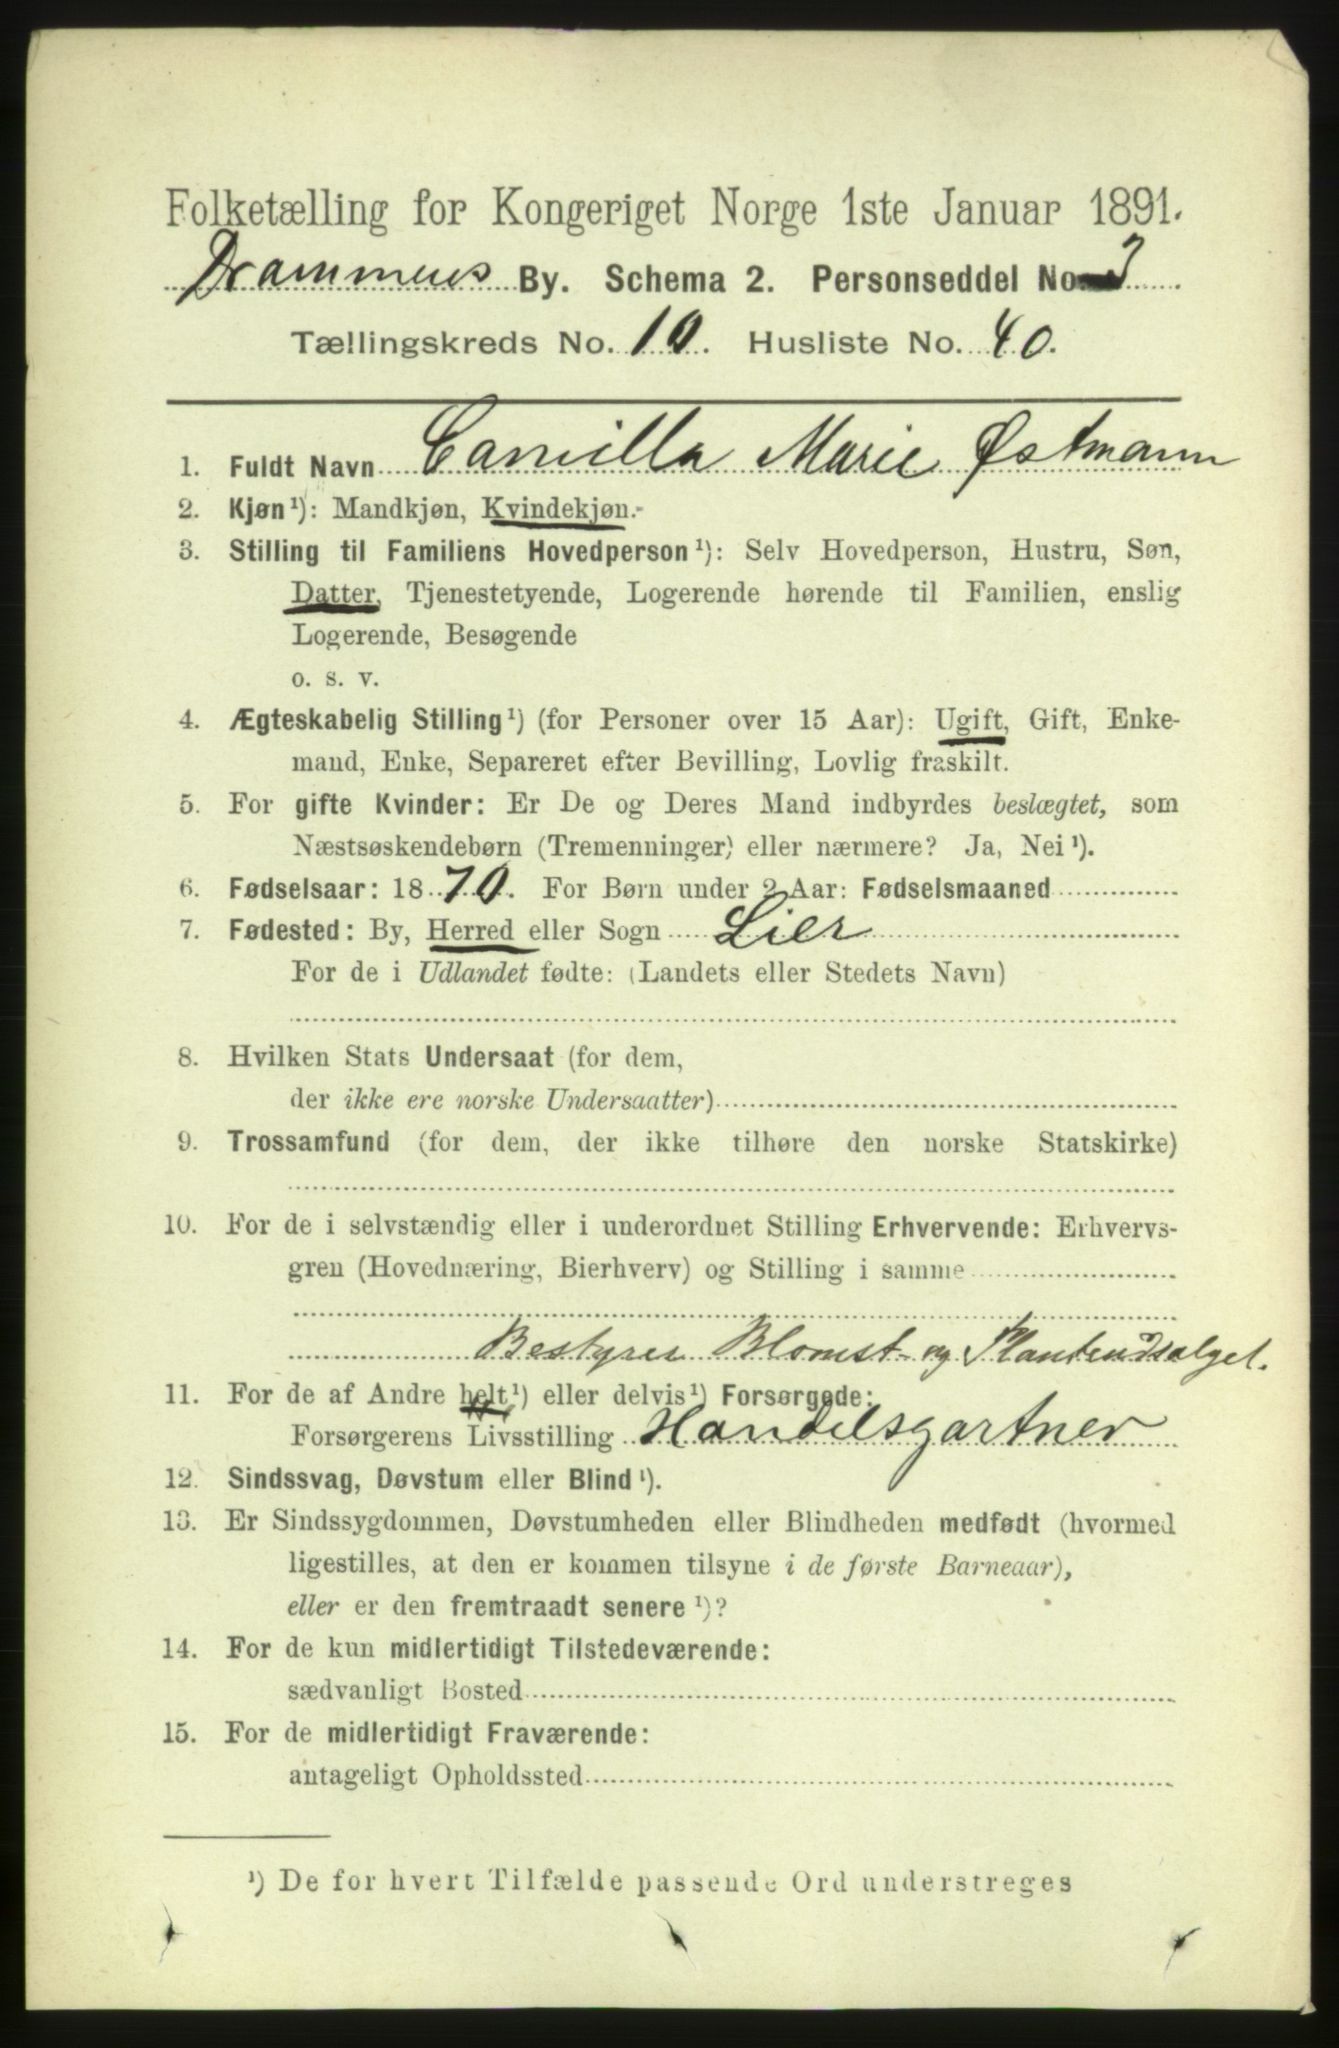 Folketælling for Kongeriget Norge 1ste Januar 1891.
Drammens By. Schema 2. Personseddel No. 3
Tællingskreds No. 10. Husliste No. 40.
1. Fuldt Navn Camilla Marie Østmann
2. Kjøn¹): Mandkjøn, Kvindekjøn.
3. Stilling til Familiens Hovedperson¹): Selv Hovedperson, Hustru, Søn,
Datter, Tjenestetyende, Logerende hørende til Familien, enslig
Logerende, Besøgende
o. s. v.
4. Ægteskabelig Stilling¹) (for Personer over 15 Aar): Ugift, Gift, Enke-
mand, Enke, Separeret efter Bevilling, Lovlig fraskilt.
5. For gifte Kvinder: Er De og Deres Mand indbyrdes beslægtet, som
Næstsøskendebørn (Tremenninger) eller nærmere? Ja, Nei¹).
6. Fødselsaar: 1870. For Børn under 2 Aar: Fødselsmaaned
7. Fødested: By, Herred eller Sogn Lier
For de i Udlandet fødte: (Landets eller Stedets Navn)
8. Hvilken Stats Undersaat (for dem,
der ikke ere norske Undersaatter)
9. Trossamfund (for dem, der ikke tilhøre den norske Statskirke)
10. For de i selvstændig eller i underordnet Stilling Erhvervende: Erhvervs-
gren (Hovednæring, Bierhverv) og Stilling i samme
Bestyrer Blomst- og Planteudsalget.
11. For de af Andre helt¹) eller delvis¹) Forsørgede:
Forsørgerens Livsstilling Handelsgartner
12. Sindssvag, Døvstum eller Blind¹).
13. Er Sindssygdommen, Døvstumheden eller Blindheden medfødt (hvormed
ligestilles, at den er kommen tilsyne i de første Barneaar),
eller er den fremtraadt senere¹)?
14. For de kun midlertidigt Tilstedeværende:
sædvanligt Bosted
15. For de midlertidigt Fraværende:
antageligt Opholdssted
¹) De for hvert Tilfælde passende Ord understreges